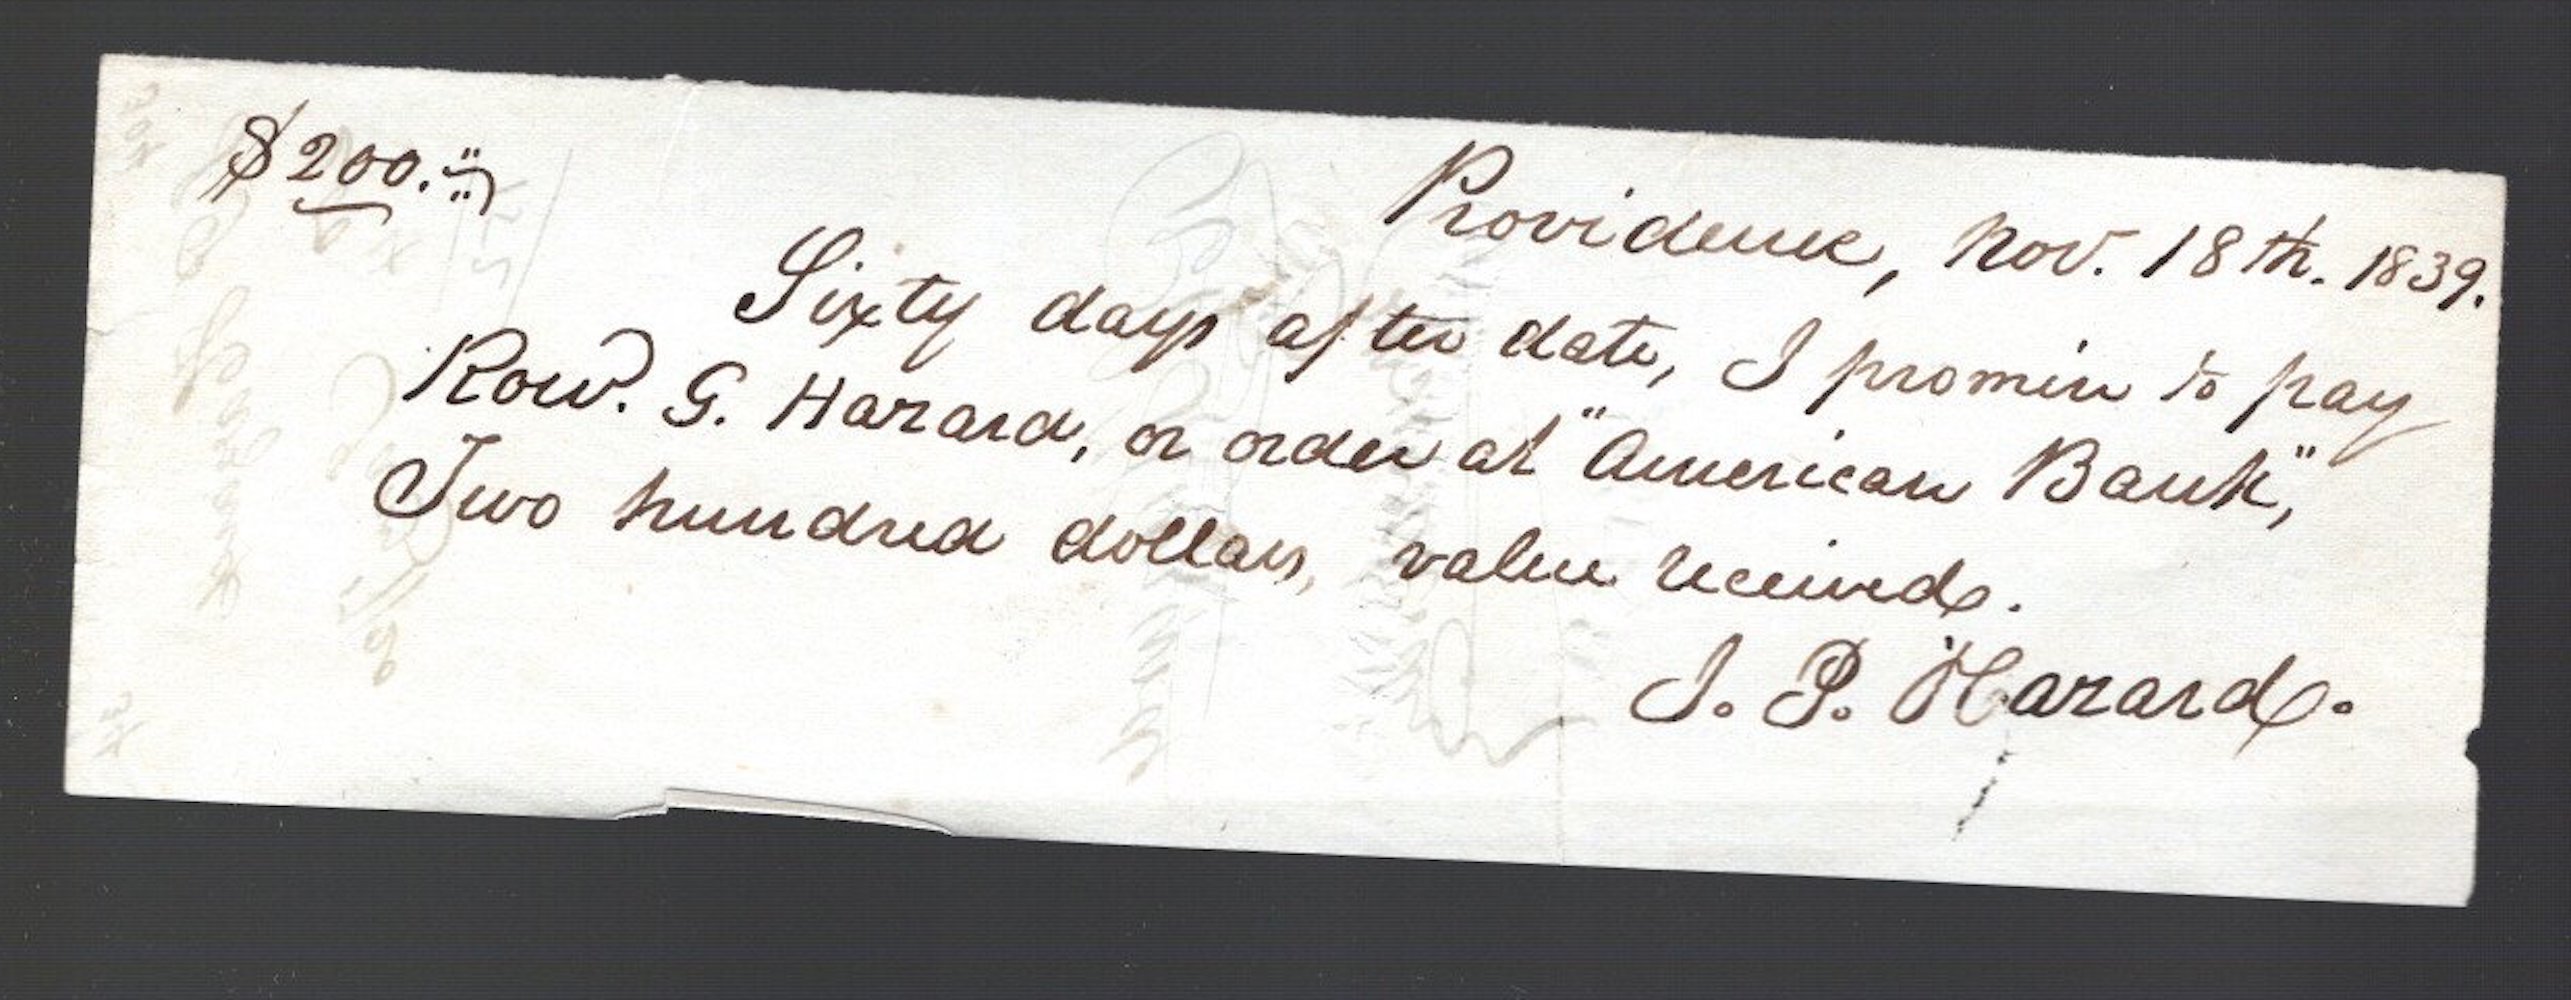 $200.
Providence, Nov. 18th. 1839.
Sixty days after date, I promise to pay
Row. G. Hazard, or order at "American Bank,"
Two hundred dollars, value received.
J. P. Hazard.